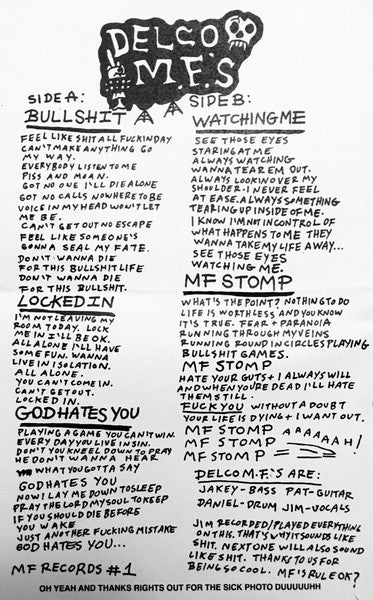 DELCO
M.F.'S
SIDE A:
BULLSHIT
FEEL LIKE SHIT ALL FUCKIN DAY
CAN'T MAKE ANYTHING GO
MY WAY.
EVERYBODY LISTEN TO ME
PISS AND MOAN.
GOT NO ONE I'LL DIE ALONE
GOT NO CALLS NOWHERE TO BE
VOICE IN MY HEAD WON'T LET
ME BE.
CAN'T GET OUT NO ESCAPE
FEEL LIKE SOMEONE'S
GONNA SEAL MY FATE.
DON'T WANNA DIE
FOR THIS BULLSHIT LIFE
DON'T WANNA DIE
FOR THIS BULLSHIT.
LOCKED IN
I'M NOT LEAVING MY
ROOM TODAY. LOCK
ME IN I'LL BE OK.
ALL ALONE I'LL HAVE
SOME FUN. WANNA
LIVE IN ISOLATION.
ALL ALONE.
YOU CAN'T COME IN.
CAN'T GET OUT.
LOCKED IN.
GOD HATES YOU
PLAYING A GAME YOU CAN'T WIN.
EVERY DAY YOU LIVE IN SIN.
DON'T YOU KNEEL DOWN TO PRAY
HE DON'T WANNA HEAR
WHAT YOU GOTTA SAY
GOD HATES YOU
NOW I LAY ME DOWN TO SLEEP
PRAY THE LORD MY SOUL TO KEEP
IF YOU SHOULD DIE BEFORE
YOU WAKE
JUST ANOTHER FUCKING MISTAKE
GOD HATES YOU...
MF RECORDS #1
SIDE B:
WATCHING ME
SEE THOSE EYES
STARING AT ME
ALWAYS WATCHING
WANNA TEAR EM OUT.
ALWAYS LOOKIN OVER MY
SHOULDER. I NEVER FEEL
AT EASE. ALWAYS SOMETHING
TEARING UP INSIDE OF ME.
I KNOW I'M NOT IN CONTROL OF
WHAT HAPPENS TO ME THEY
WANNA TAKE MY LIFE AWAY...
SEE THOSE EYES
WATCHING ME.
MF STOMP
WHAT'S THE POINT? NOTHING TO DO
LIFE IS WORTHLESS AND YOU KNOW
IT'S TRUE. FEAR + PARANOIA
RUNNING THROUGH MY VEINS
RUNNING ROUND IN CIRCLES PLAYING
BULLSHIT GAMES.
MF STOMP
HATE YOUR GUTS + I ALWAYS WILL
AND WHEN YOU'RE DEAD I'LL HATE
THEM STILL.
FUCK YOU WITHOUT A DOUBT
YOUR LIFE IS DYING + I WANT OUT.
MF STOMP
MF STOMP AAAAAAH!
MF STOMP
DELCO M.F.'S ARE:
JAKEY-BASS PAT-GUITAR
DANIEL-DRUM JIM-VOCALS
JIM RECORDED/PLAYED EVERYTHING
ON THIS. THAT'S WHY IT SOUNDS LIKE
SHIT. NEXT ONE WILL ALSO SOUND
LIKE SHIT. THANKS TO US FOR
BEING SO COOL. MF'S RULE OK?
OH YEAH AND THANKS RIGHTS OUT FOR THE SICK PHOTO DUUUUUHH